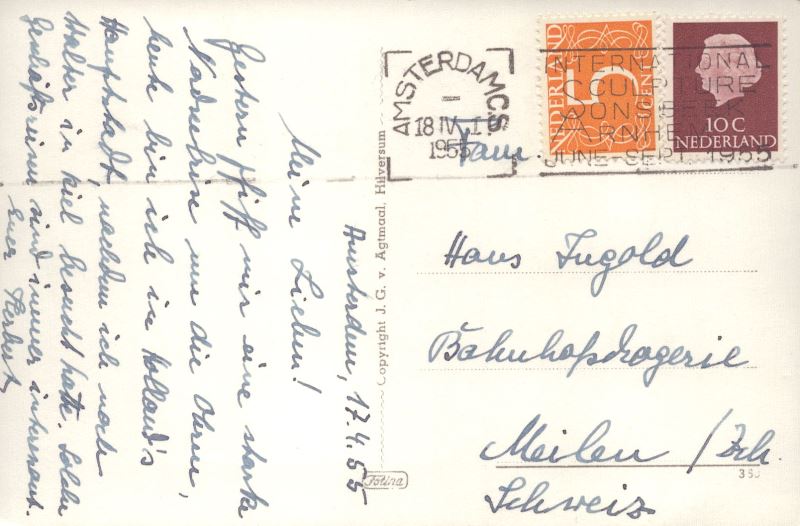 Amsterdam, 17.4.55
Meine Lieben!
Gestern pfiff mir eine starke
um die Ohren,
heute bin ich in Holland's
Hauptstadt, nachdem ich noch
Halter in Kiel besucht hatte. Solche
Geschäftsreisen sind immer interessant.
Euer Herbert
Copyright J. G. v. Agtmaal, Hilversum
Fotina
AMSTERDAM CS
18 IV
1955
NEDERLAND
5
CENT
10 C
NEDERLAND
INTERNATIONAL
SCULPTURE
SONSBEEK
ARNHEM
JUNE-SEPT. 1955
Fam.
Hans Ingold
Bahnhofsdrogerie
Meilen / Zch.
Schweiz